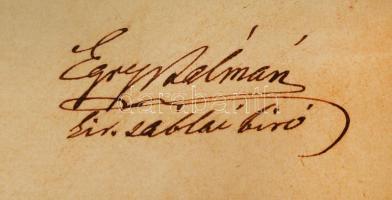 Egry Kálmán
kir. táblai biró
darabanth